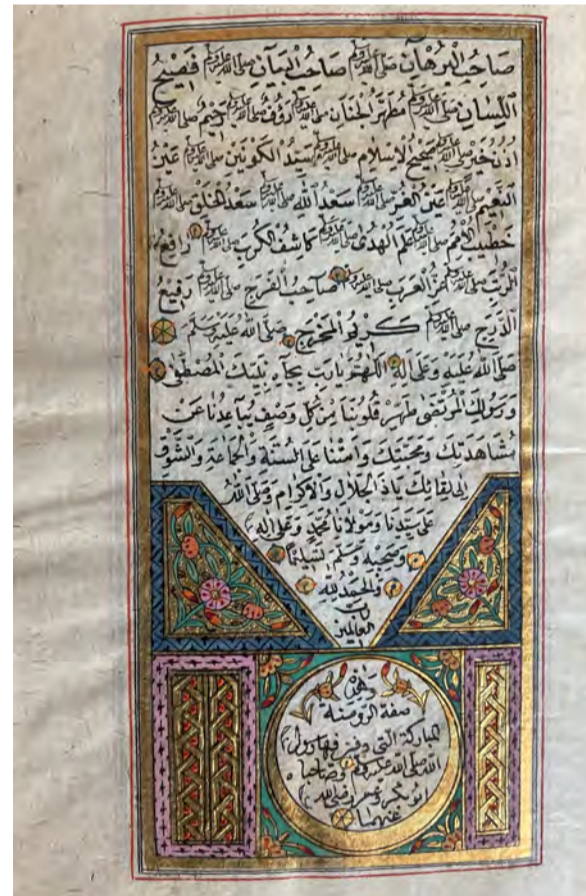 صَاحِبُ الْبُرْهَانِ صَلَّى اللَّهُ عَلَيْهِ وَسَلَّمَ صَاحِبُ الْبَيَانِ صَلَّى اللَّهُ عَلَيْهِ وَسَلَّمَ فَصِيحُ
اللِّسَانِ صَلَّى اللَّهُ عَلَيْهِ وَسَلَّمَ مُطَهَّرُ الْجَنَانِ صَلَّى اللَّهُ عَلَيْهِ وَسَلَّمَ رَؤُفٌ صَلَّى اللَّهُ عَلَيْهِ وَسَلَّمَ رَحِيمٌ صَلَّى اللَّهُ عَلَيْهِ وَسَلَّمَ
أُذُنُ خَيْرٍ صَلَّى اللَّهُ عَلَيْهِ وَسَلَّمَ صَحِيحُ الْإِسْلَامِ صَلَّى اللَّهُ عَلَيْهِ وَسَلَّمَ سَيِّدُ الْكَوْنَيْنِ صَلَّى اللَّهُ عَلَيْهِ وَسَلَّمَ عَيْنُ
النَّعِيمِ صَلَّى اللَّهُ عَلَيْهِ وَسَلَّمَ عَيْنُ الْغُرِّ صَلَّى اللَّهُ عَلَيْهِ وَسَلَّمَ سَعْدُ اللَّهِ صَلَّى اللَّهُ عَلَيْهِ وَسَلَّمَ سَعْدُ الْخَلْقِ صَلَّى اللَّهُ عَلَيْهِ وَسَلَّمَ
خَطِيبُ الْأُمَمِ صَلَّى اللَّهُ عَلَيْهِ وَسَلَّمَ عَلَمُ الْهُدَى صَلَّى اللَّهُ عَلَيْهِ وَسَلَّمَ كَاشِفُ الْكُرَبِ صَلَّى اللَّهُ عَلَيْهِ وَسَلَّمَ رَافِعُ
الرُّتَبِ صَلَّى اللَّهُ عَلَيْهِ وَسَلَّمَ عِزُّ الْعَرَبِ صَلَّى اللَّهُ عَلَيْهِ وَسَلَّمَ صَاحِبُ الْفَرَجِ صَلَّى اللَّهُ عَلَيْهِ وَسَلَّمَ رَفِيعُ
الدَّرَجِ صَلَّى اللَّهُ عَلَيْهِ وَسَلَّمَ كَرِيمُ الْمَخْرَجِ صَلَّى اللَّهُ عَلَيْهِ وَسَلَّمَ
صَلَّى اللَّهُ عَلَيْهِ وَعَلَى آلِهِ اللَّهُمَّ يَا رَبِّ بِجَاهِ نَبِيِّكَ الْمُصْطَفَى
وَرَسُولِكَ الْمُرْتَضَى طَهِّرْ قُلُوبَنَا مِنْ كُلِّ وَصْفٍ يُبَاعِدُنَا عَنْ
مُشَاهَدَتِكَ وَمَحَبَّتِكَ وَأَمِتْنَا عَلَى السُّنَّةِ وَالْجَمَاعَةِ وَالشَّوْقِ
إِلَى لِقَائِكَ يَا ذَا الْجَلَالِ وَالْإِكْرَامِ وَصَلَّى اللَّهُ
عَلَى سَيِّدِنَا وَمَوْلَانَا مُحَمَّدٍ وَعَلَى آلِهِ
وَصَحْبِهِ وَسَلَّمَ تَسْلِيمًا
وَالْحَمْدُ لِلَّهِ
رَبِّ
الْعَالَمِينَ
وَهَذِهِ
صفة الروضة
المباركة التي دفن فيها رسول
الله صلى الله عليه وسلم وصاحباه
ابوبكر وعمر رضى الله
عنهما